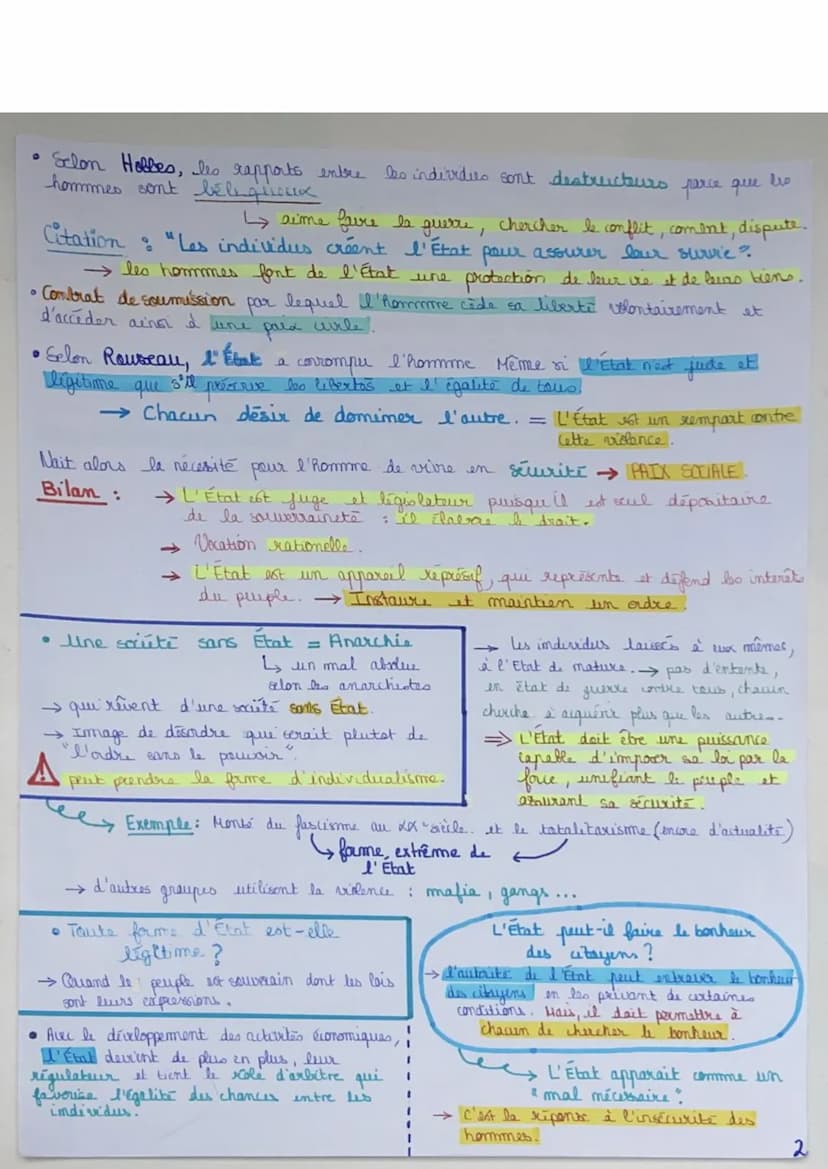 • Selon Hobbes, les rapports entre les individus sont destructeurs parce que les
hommes sont béliqueux
↳ aime faire la guerre, chercher le conflit, combat, dispute.
Citation : "Les individus créent l'État pour assurer leur survie".
→ les hommes font de l'État une protection de leur vie et de leurs biens.
• Contrat de soumission par lequel l'homme cède sa liberté volontairement et
d'accéder ainsi à une paix civile.
• Selon Rousseau, l'État a corrompu l'homme Même si l'État n'est juste et
légitime que s'il préserve les libertés et l'égalité de tous
→ Chacun désir de dominer l'autre. = L'État est un rempart contre
cette violence.
Nait alors la nécessité pour l'homme de vivre en sécurité → PAIX SOCIALE.
Bilan : → L'État est juge et législateur puisqu'il est seul dépositaire
de la souverraineté : il élabore le droit.
→ Vocation rationelle.
→ L'État est un appareil répréssif, qui représente et défend les interêts
du peuple. → Instaure et maintien un ordre.
• Une société sans État = Anarchie
↳ un mal absolu
selon les anarchistes
→ qui rêvent d'une société sans État.
→ Image de désordre qui serait plutot de
"l'ordre sans le pouvoir".
⚠ peut prendre la forme d'individualisme.
→ Les individus laissés à eux mêmes,
à l'Etat de nature. → pas d'entente,
en état de guerre contre tous, chacun
cherche à acquérir plus que les autre...
⇒ L'État doit être une puissance
capable d'imposer sa loi par la
force, unifiant le peuple et
assurant sa sécurité.
→ Exemple : Monté du fascisme au XXe siècle. et le totalitarisme (encore d'actualité)
↳ forme extrême de
l'État
→ d'autres groupes utilisent la violence : mafia, gangs...
• Toute forme d'État est-elle
légitime ?
→ Quand le peuple est souverain dont les lois
sont leurs expressions.
• Avec le développement des activités économiques,
l'État devient de plus en plus, leur
régulateur et tient le rôle d'arbitre qui
favorise l'égalité des chances entre les
individus.
L'État peut-il faire le bonheur
des citoyens ?
→ l'autorité de l'État peut entraver le bonheur
des citoyens en les privant de certaines
conditions. Mais, il doit permettre à
chacun de chercher le bonheur.
→ L'État apparait comme un
"mal nécessaire".
→ C'est la réponse à l'insécurité des
hommes.
2